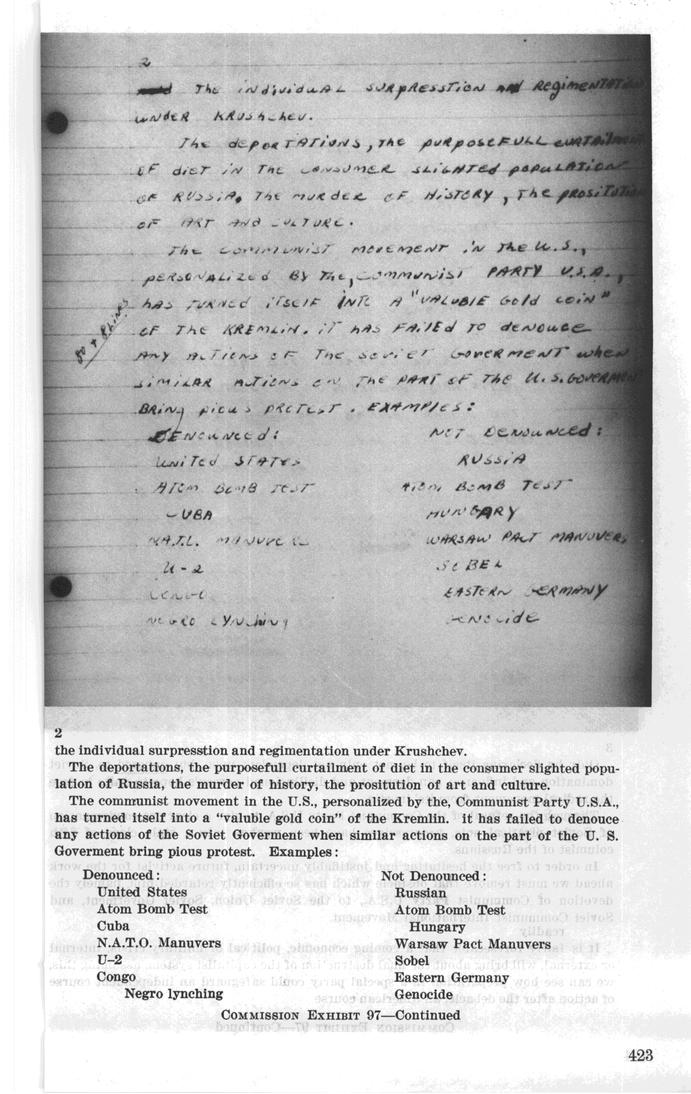 2
The individual surpresstion and regimentation
under Krushchev.
The deportations, the purposefull curtailment
of diet in the consumer slighted population
of Russia, the murder of history, the prositution
of art and culture.
The communist movement in the U.S.,
personalized by the, Communist Party U.S.A.,
has turned itself into a "valuble gold coin"
of the Kremlin. it has failed to denouce
any actions of the Soviet Goverment when
similar actions on the part of the U.S. Goverment
bring pious protest. Examples:
Denounced: Not Denounced:
United States Russia
Atom Bomb Test Atom Bomb Test
Cuba Hungary
N.A.T.O. Manuvers Warsaw Pact Manuvers
U-2 Sobel
Congo Eastern Germany
Negro Lynching Genocide
2
the individual surpresstion and regimentation under Krushchev.
The deportations, the purposefull curtailment of diet in the consumer slighted popu-
lation of Russia, the murder of history, the prositution of art and culture.
The communist movement in the U.S., personalized by the, Communist Party U.S.A.,
has turned itself into a "valuble gold coin" of the Kremlin. it has failed to denouce
any actions of the Soviet Goverment when similar actions on the part of the U. S.
Goverment bring pious protest. Examples:
Denounced: Not Denounced:
United States Russian
Atom Bomb Test Atom Bomb Test
Cuba Hungary
N.A.T.O. Manuvers Warsaw Pact Manuvers
U-2 Sobel
Congo Eastern Germany
Negro lynching Genocide
COMMISSION EXHIBIT 97—Continued
423